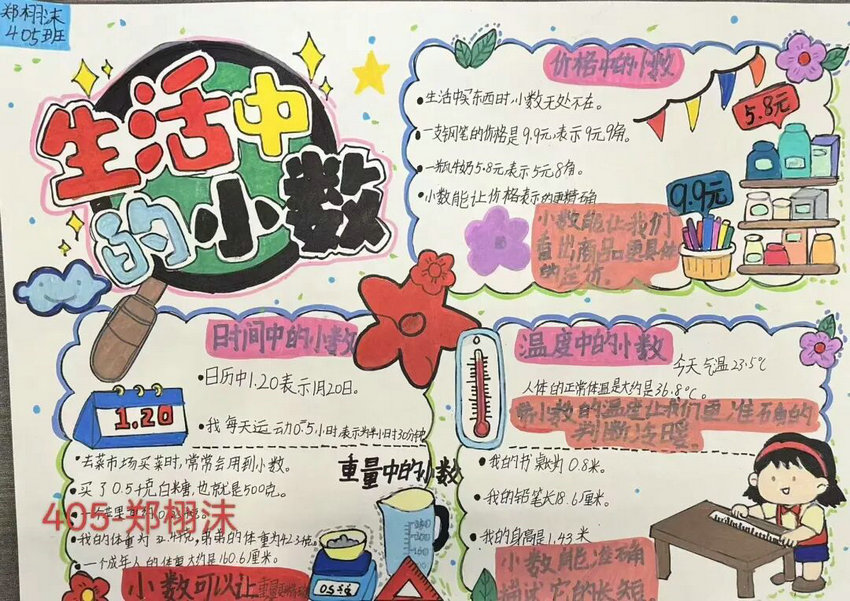 郑栩沫
405班
生活中
的小数
价格中的小数
生活中买东西时,小数无处不在。
一支钢笔的价格是9.9元,表示9元9角。
一瓶牛奶5.8元,表示5元8角。
小数能让价格表示的更精确
小数能让我们
看出商品更具体
的定价。
5.8元
9.9元
时间中的小数
日历中1.20表示1月20日。
我每天运动0.5小时表示为半小时30分钟
1.20
温度中的小数
今天气温23.5℃
人体的正常体温是大约是36.8℃。
的温度让我们更准确的
判断冷暖。
重量中的小数
去菜市场买菜时,常常会用到小数。
买了0.5千克白糖,也就是500克。
我的体重为
弟弟的体重为42.3千克。
一个成年人的体重大约是160.6厘米。
小数可以让重量更精确
我的书桌为0.8米。
我的铅笔长18.6厘米。
我的身高是1.43米
小数能准确
描述它的长短。
405-郑栩沫